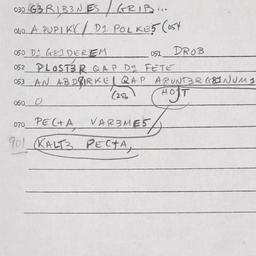 030 GƎRIBƎNES / GRIB...
040 A PUPIKY / D1 POLKES (054
050 D1 GEDEREM 051 DROB
052 PLOSTƎR QAP D1 FETE
053 AN ABDIRKEL QAP
(28) HOJT
060 O
070 PECTA, VARƎMES
901 KALTƎ PECTA,